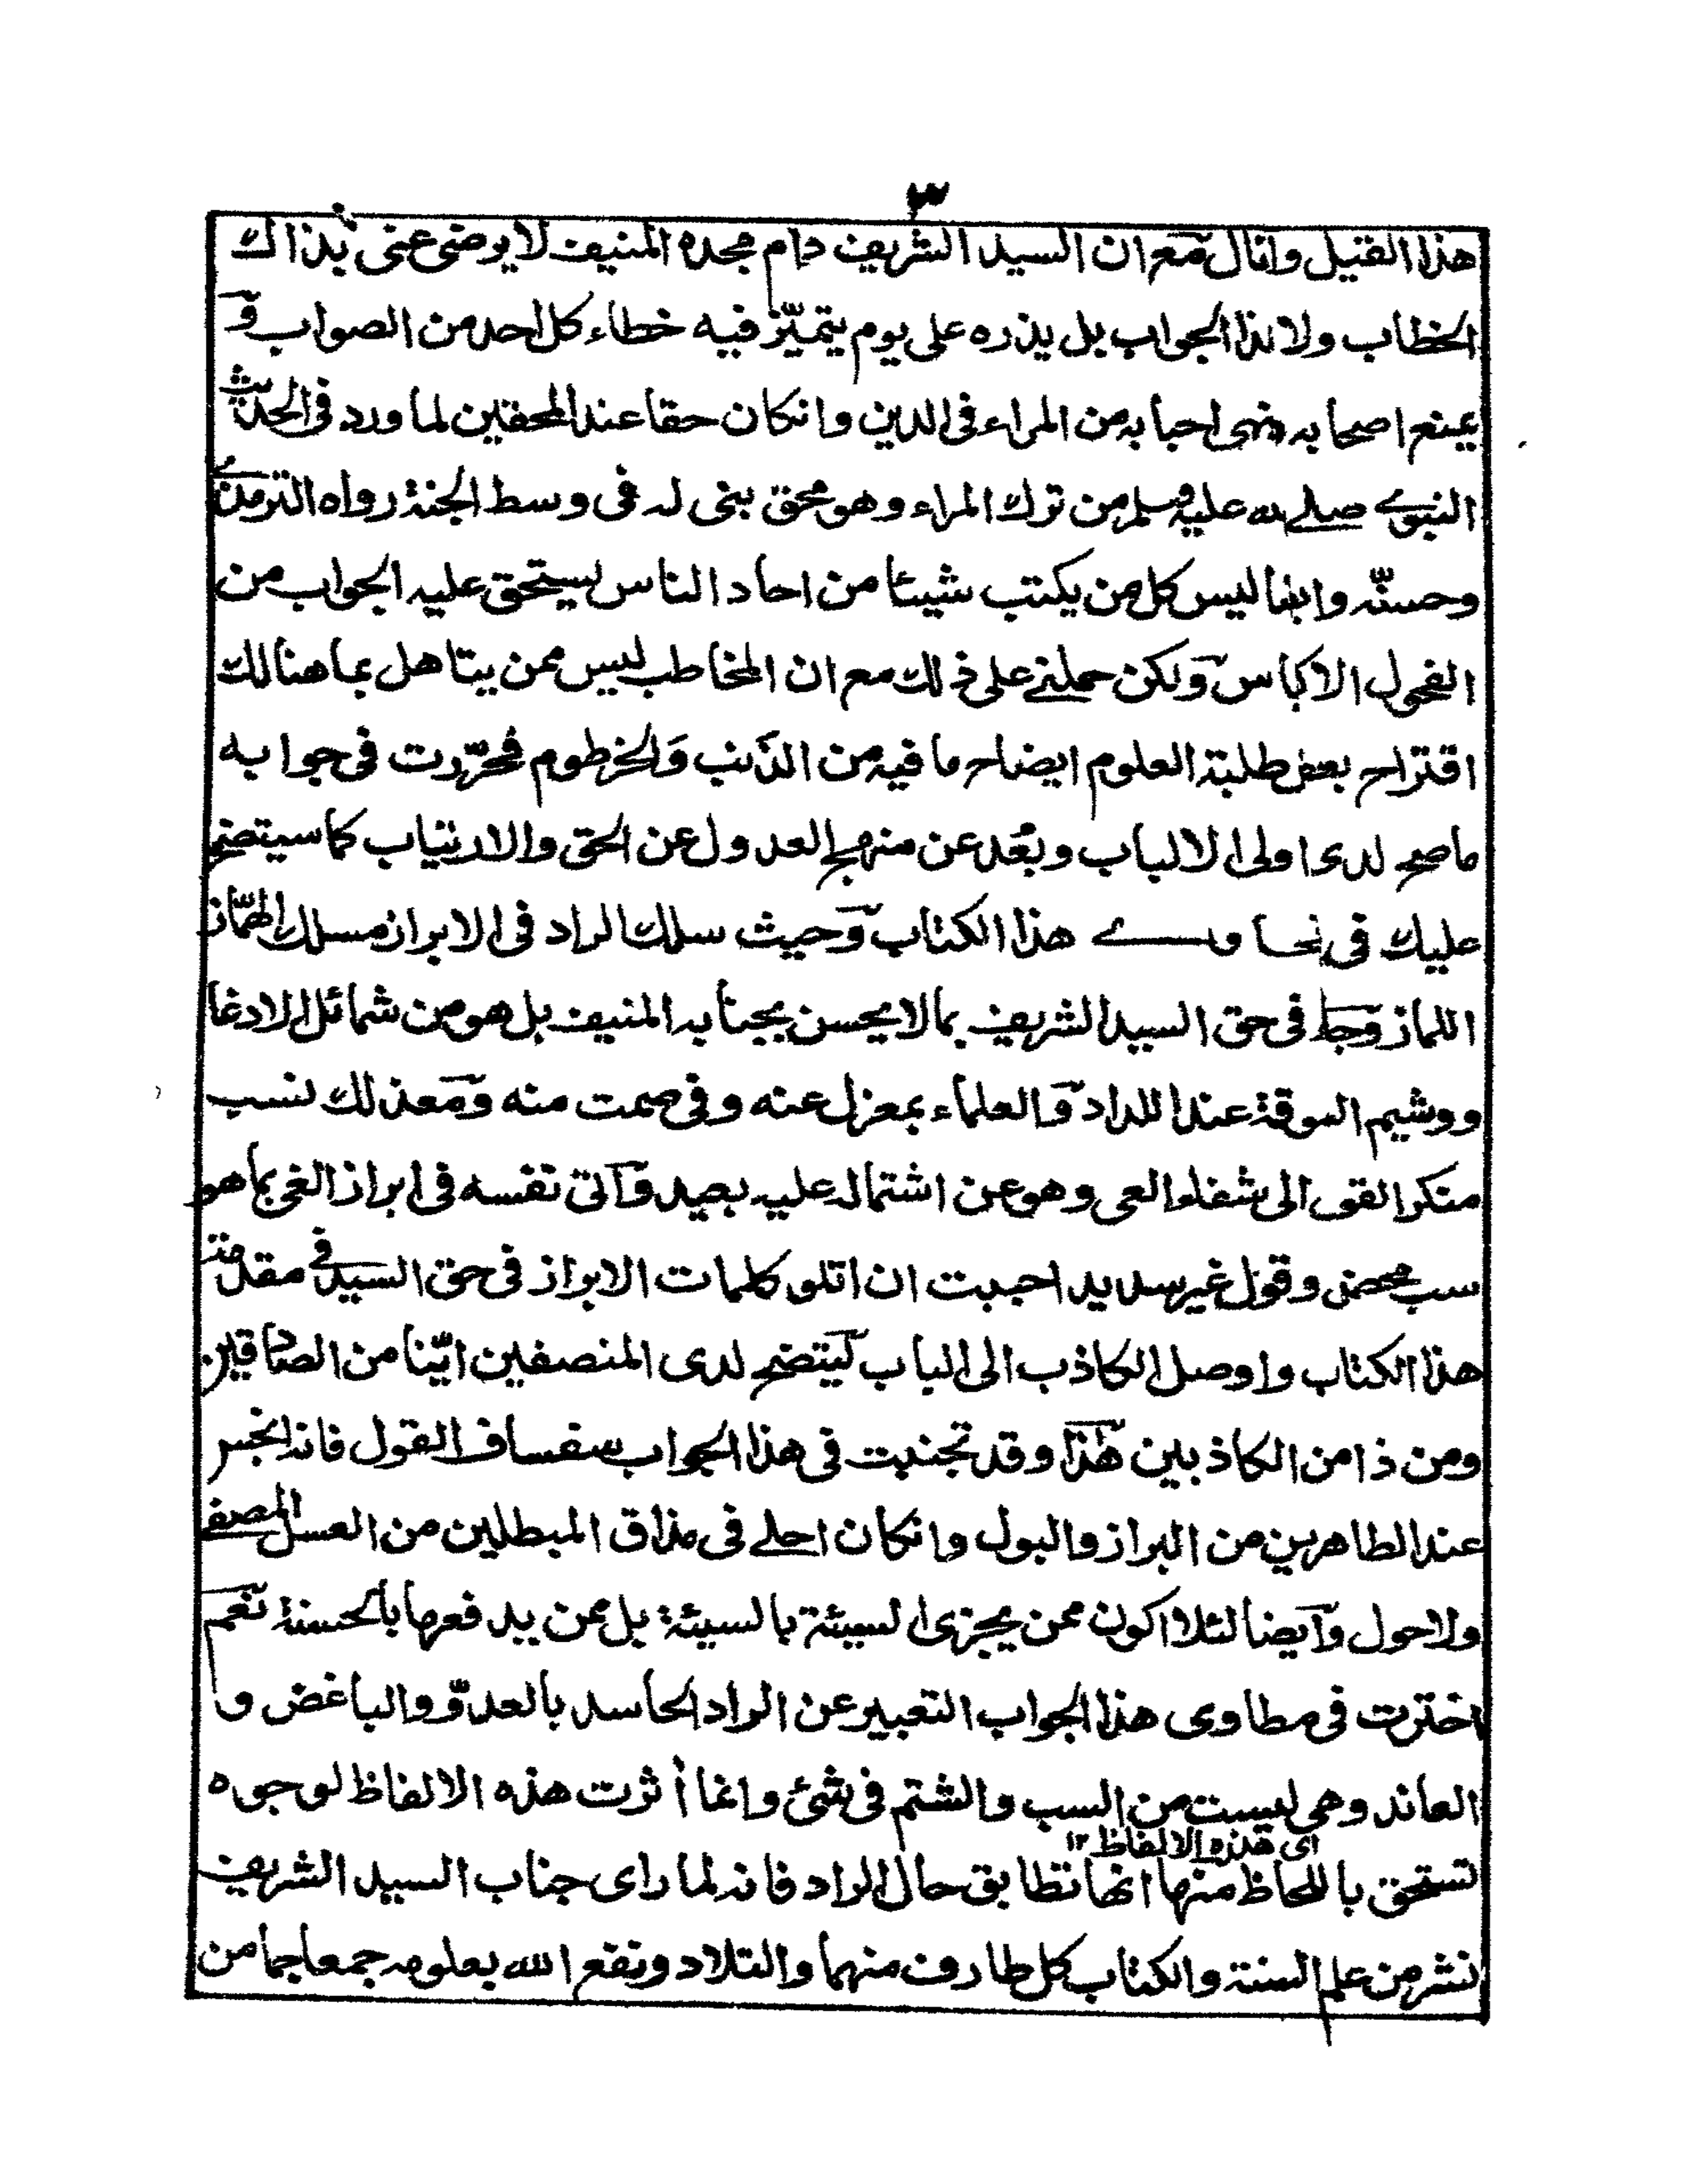 ٣
هذا القتيل وانال مع ان السيد الشريف دام مجده المنيف لا يرضى عنى بذاك
الخطاب ولا بذا الجواب بل يذره على يوم يتميّز فيه خطاء كل احد من الصواب و
يمنع اصحابه ونهى احبابه من المراء فى الدين وانكان حقا عند المحقين لما ورد فى الحديث
النبوے صلے الله عليه وسلم من ترك المراء وهو محق بنى له فى وسط الجنة رواه الترمذى
وحسنّه وايضا ليس كل من يكتب شيئا من احاد الناس يستحق عليه الجواب من
الفحول الاكياس ولكن حملنے على ذلك مع ان المخاطب ليس ممن يتاهل بما هنالك
اقتراح بعض طلبة العلوم ايضاح ما فيه من الذنب والخرطوم فحرّرت فى جوابه
ما صح لدى اولى الالباب وبعُد عن منهج العدول عن الحق والارتياب كما سيتضح
عليك فى هذا الكتاب وحيث سلك الراد فى الابراز مسلك الهمّاز
اللماز وجاء فى حق السيد الشريف بما لا يحسن بجنابه المنيف بل هو من شمائل الادغا
ووشيم السوقة عند اللداد والعلماء بمعزل عنه وفى صمت منه ومع ذلك نسب
منكر القول الى شفاء العى وهو عن اشتماله عليه بعيد واتى نفسه فى ابراز الغى بما هو
سب محض وقول غير سديد احببت ان اتلو كلمات الابراز فى حق السيد فى مقدمة
هذا الكتاب واوصل الكاذب الى الباب ليتضح لدى المنصفين ايّنا من الصادقين
ومن ذا من الكاذبين هذا وقد تجنبت فى هذا الجواب سفساف القول فانه انجس
عند الطاهرين من البراز والبول وانكان احلے فى مذاق المبطلين من العسل المصفے
ولا حول وايضا لئلا اكون ممن يجزى السيئة بالسيئة بل ممن يدفعها بالحسنة نعم
اخترت فى مطاوى هذا الجواب التعبير عن الراد الحاسد بالعدوّ والباغض و
العاند وهى ليست من السب والشتم فى شئ وانما أثرت هذه الالفاظ لوجوه
اى هذه الالفاظ ١٢
تستحق باللحاظ منها انها تطابق حال الراد فانه لما راى جناب السيد الشريف
نشر من علم السنة والكتاب كل طارف منهما والتلاد ونفع الله بعلومه جمعا جما من